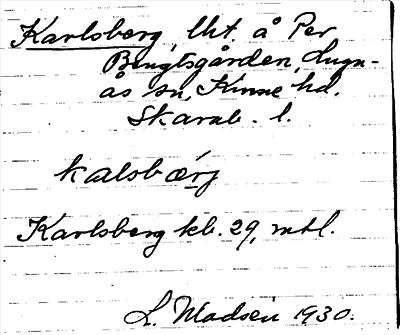 Karlsberg, lht. å Per
Bengtsgården, Lugn-
ås sn, Kinne hd.
Skarab. l.
kalsbærj
Karlsberg kb. 29, mtl.
L. Madsen 1930.